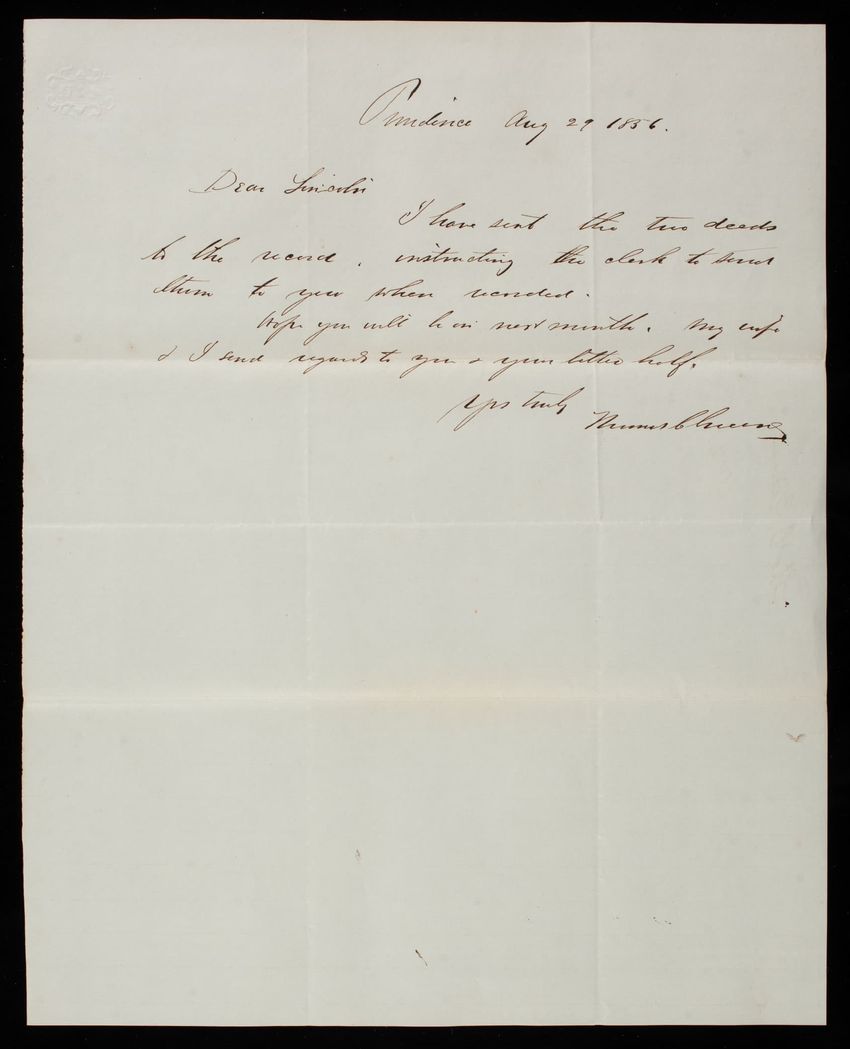 Providence Aug 29 1856.
Dear Lincoln
I have sent the two deeds
to the record, instructing the clerk to send
them to you when recorded.
Hope you will be in next month. My wife
& I send regards to you & your better half.
Yrs truly
Thomas